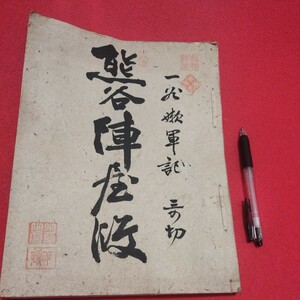 一谷嫩軍記 三の切
熊谷陣屋段